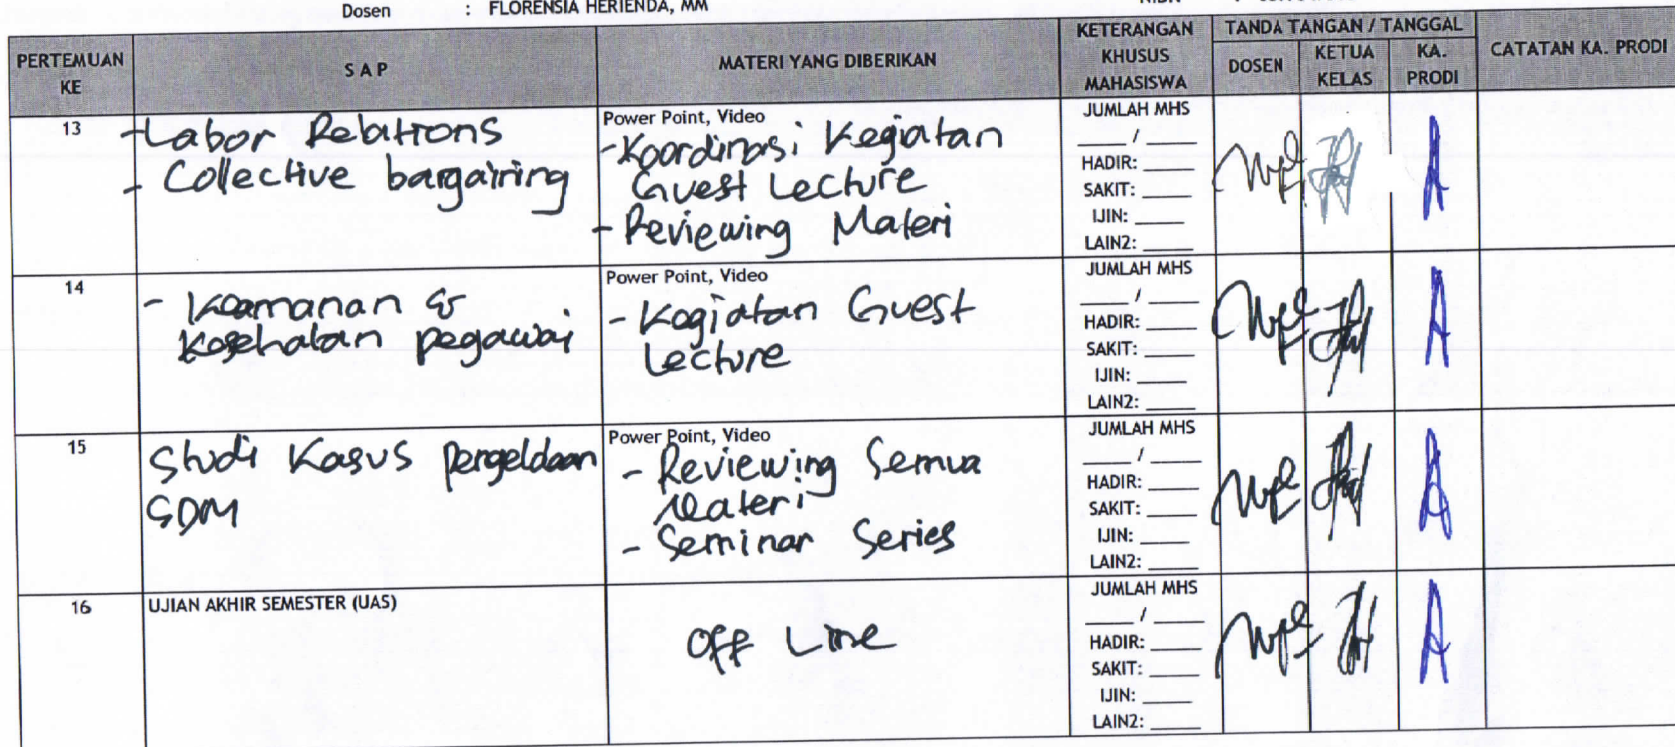 Dosen : FLORENSIA HERIENDA, MM
PERTEMUAN KE
S A P
MATERI YANG DIBERIKAN
KETERANGAN KHUSUS MAHASISWA
TANDA TANGAN / TANGGAL
DOSEN
KETUA KELAS
KA. PRODI
CATATAN KA. PRODI
13
- Labor Relations
- Collective bargairing
Power Point, Video
- Koordinasi Kegiatan
Guest Lecture
- Reviewing Materi
JUMLAH MHS
___ / ___
HADIR: ___
SAKIT: ___
IJIN: ___
LAIN2: ___
14
- Keamanan &
Kesehatan pegawai
Power Point, Video
- Kegiatan Guest
Lecture
JUMLAH MHS
___ / ___
HADIR: ___
SAKIT: ___
IJIN: ___
LAIN2: ___
15
Studi Kasus pengeldaan
SDM
Power Point, Video
- Reviewing Semua
Materi
- Seminar Series
JUMLAH MHS
___ / ___
HADIR: ___
SAKIT: ___
IJIN: ___
LAIN2: ___
16
UJIAN AKHIR SEMESTER (UAS)
Off Line
JUMLAH MHS
___ / ___
HADIR: ___
SAKIT: ___
IJIN: ___
LAIN2: ___